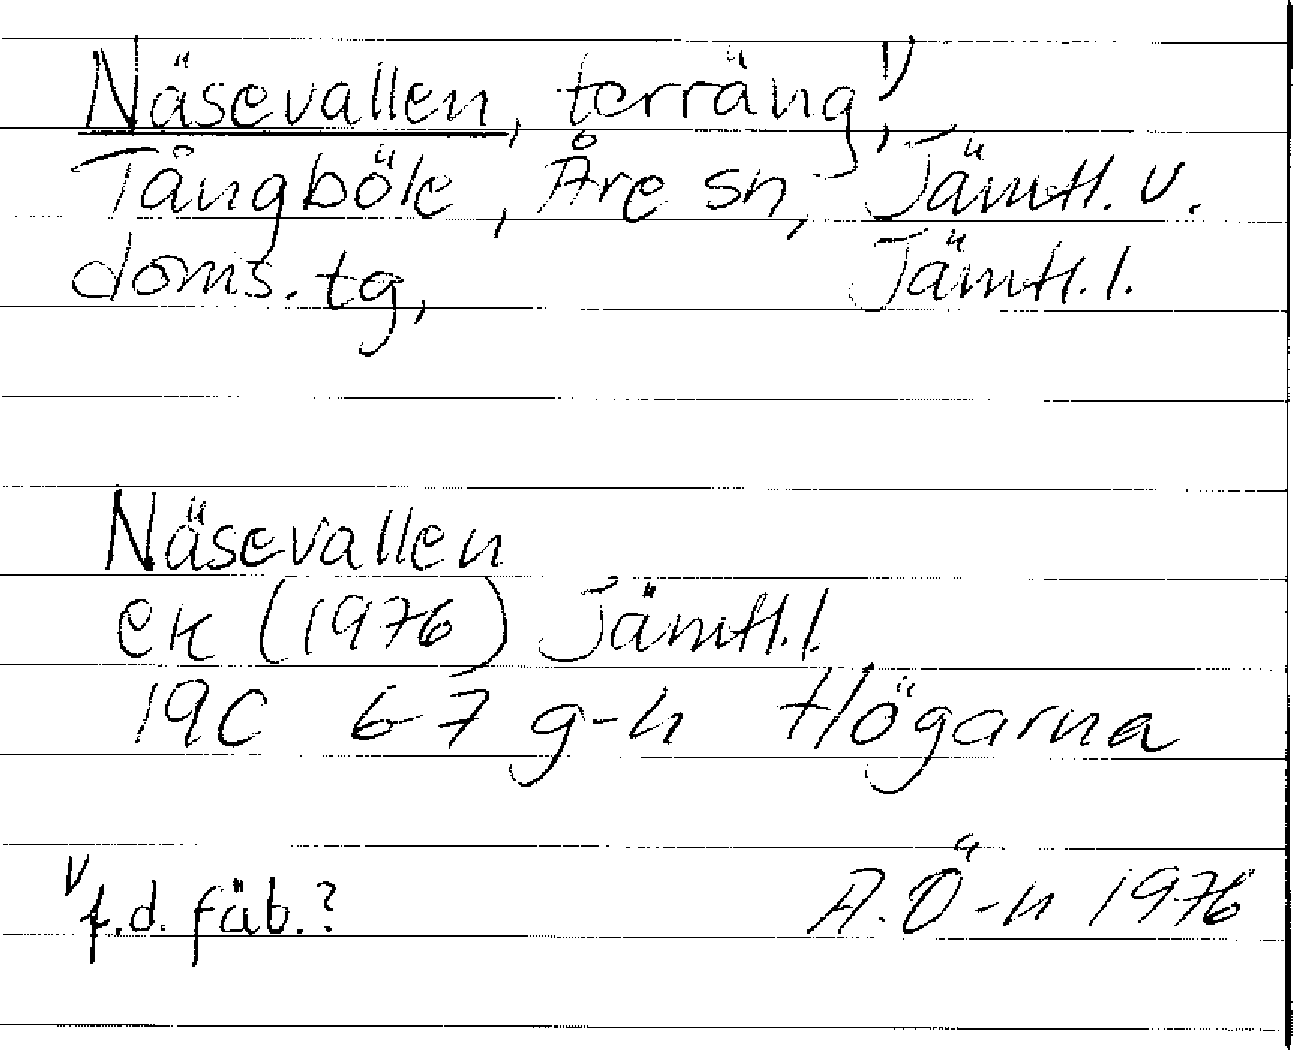 Näsevallen, terräng¹⁾,
Tångböle, Åre sn, Jämtl. v.
doms. tg, Jämtl. l.
Näsevallen
ek (1976) Jämtl. l.
19C 6-7 g-h Högarna
¹⁾ f.d. fäb.?
A. Ö-n 1976